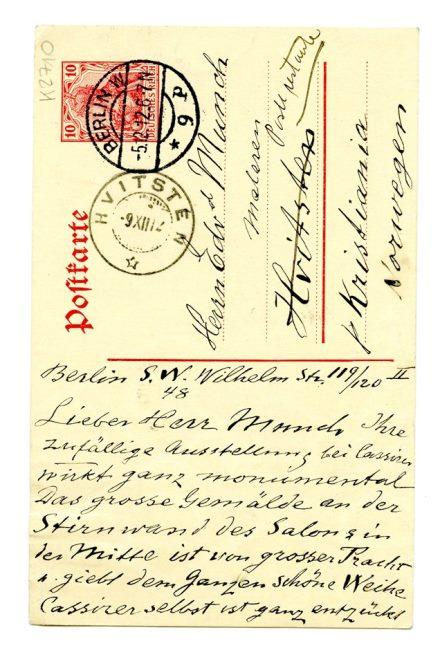 K2710
10 10
DEUTSCHES REICH
BERLIN W
-5.12.12.6-7N
* 9 P
HVITSTEN
7 III XII-9
Postkarte
Herrn Edvd Munch
maleren
Poste restante
Hvitsten
pr Kristiania
Norwegen
Berlin S.W. Wilhelm Str. 119/120 II
48
Lieber Herr Munch Ihre
zufällige Ausstellung bei Cassirer
wirkt ganz monumental
Das grosse Gemälde an der
Stirnwand des Salons in
der Mitte ist von grosser Pracht
u. giebt dem Ganzen schöne Weihe
Cassirer selbst ist ganz entzückt